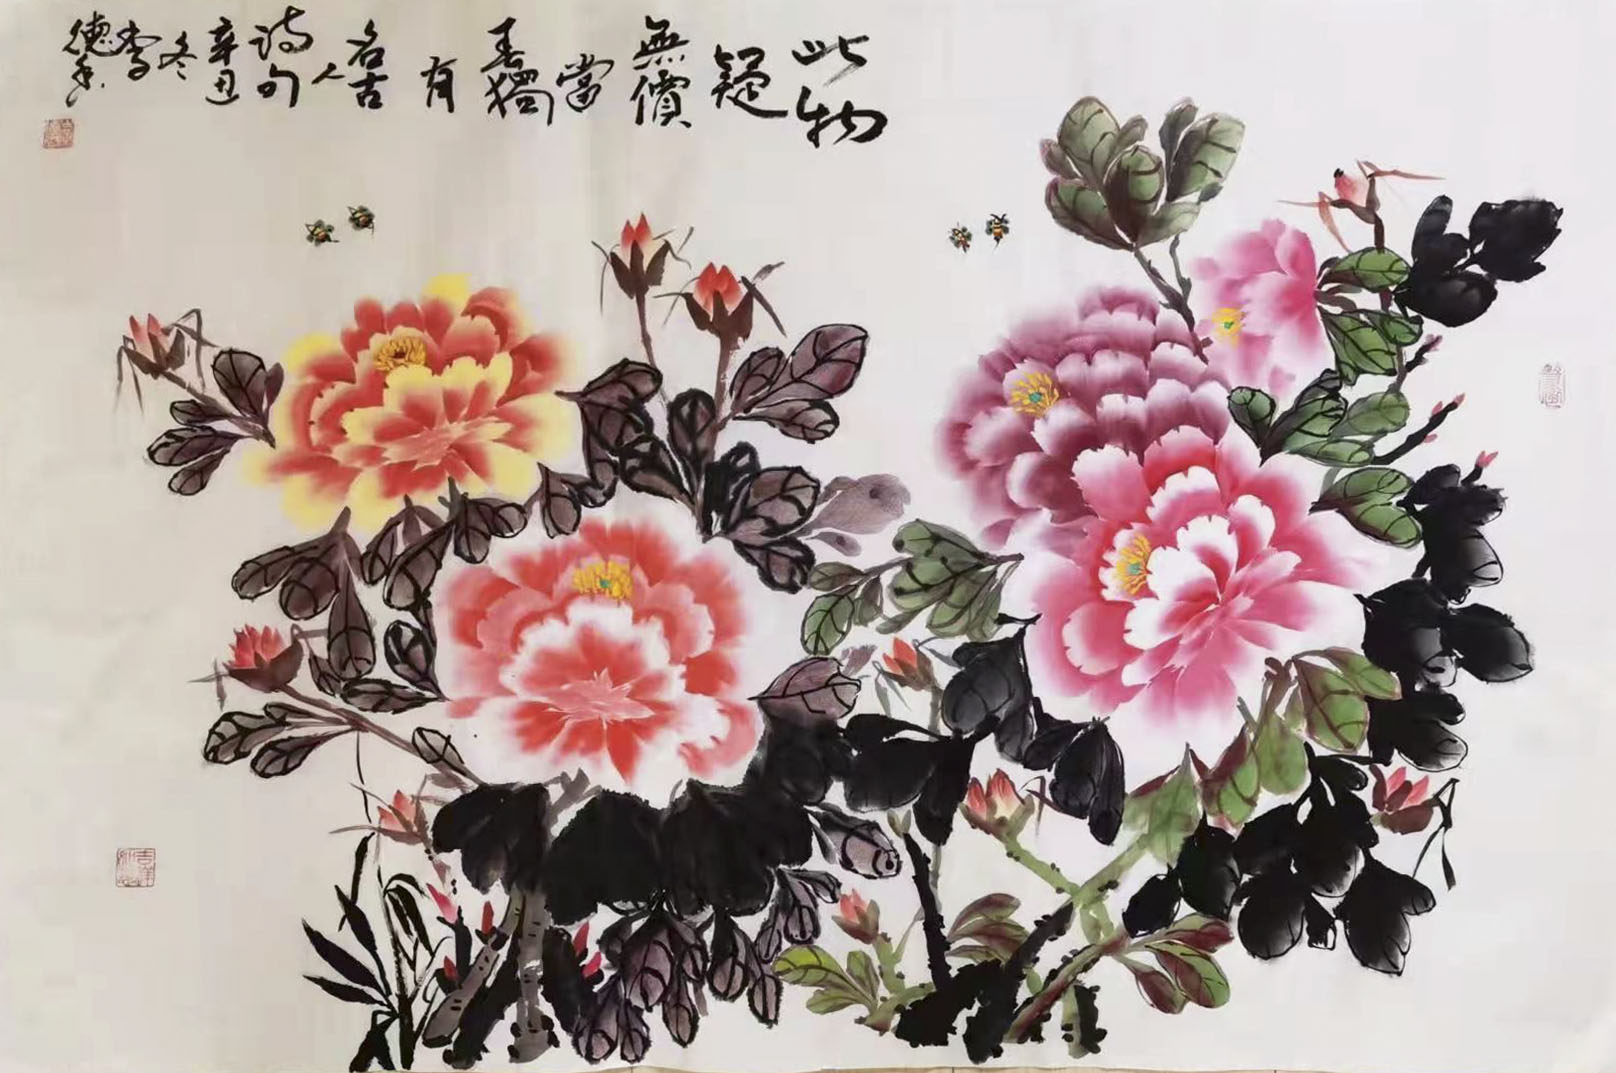 此物
疑
無價
當
春獨
有
名古
人
詩句
辛丑
冬
李
德